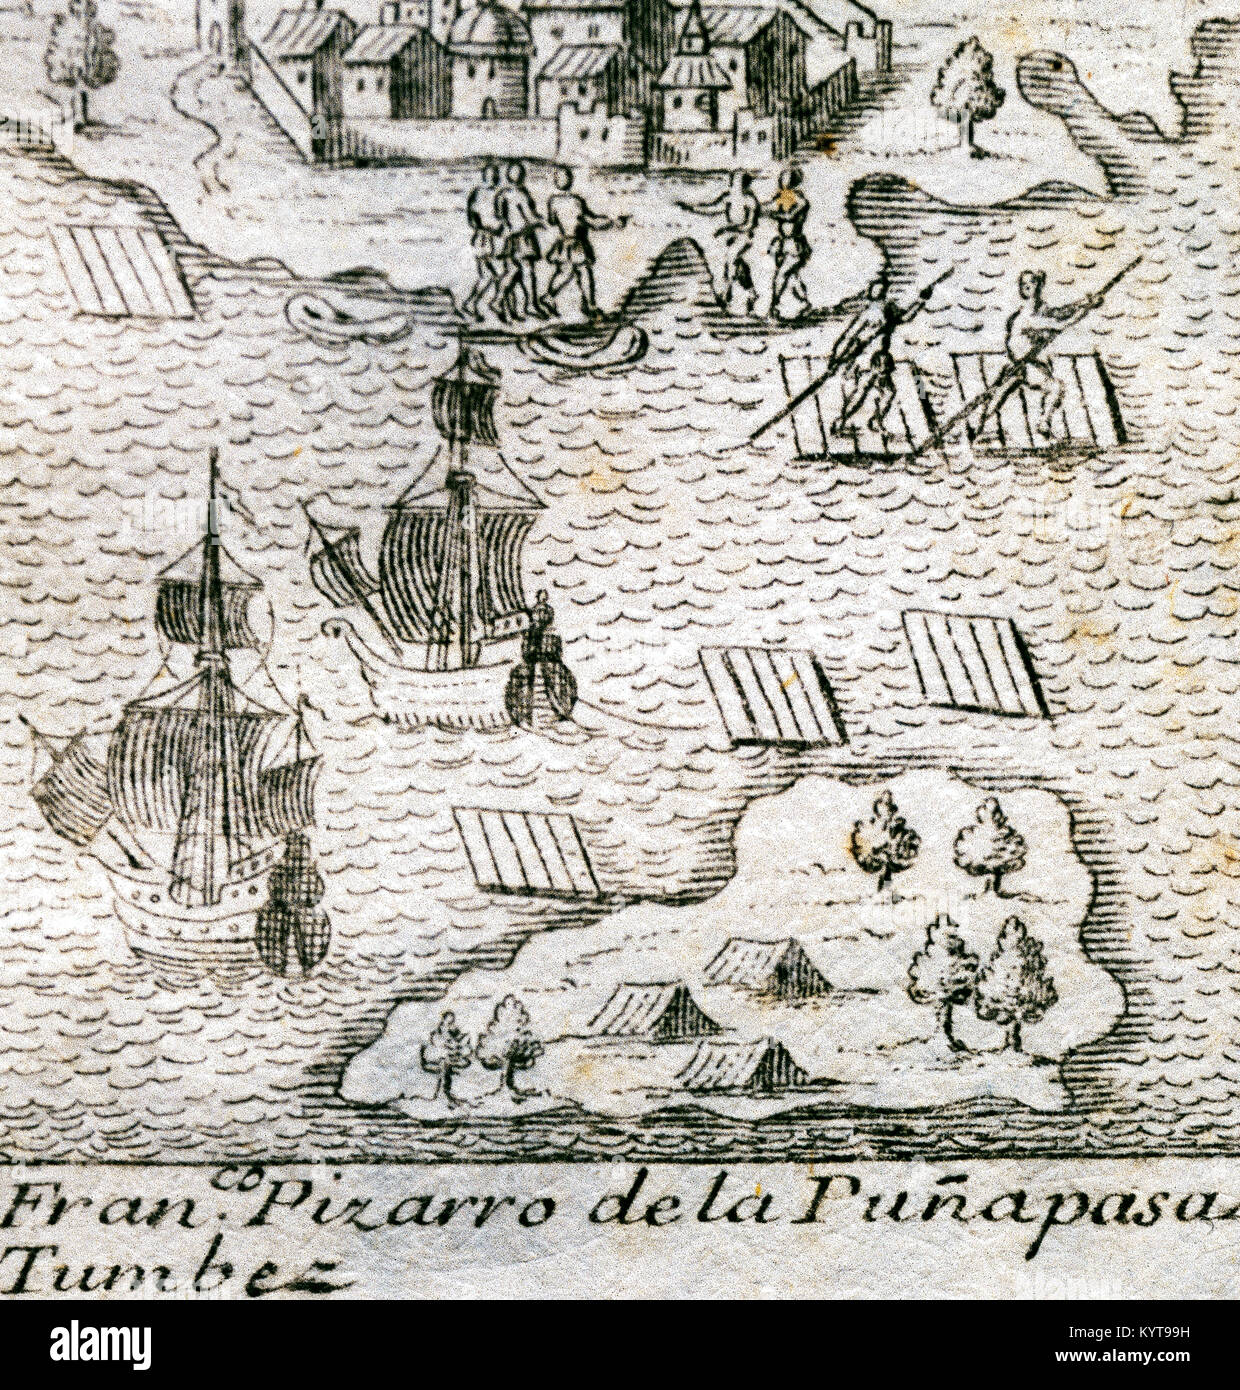 Fran.co Pizarro de la Puña pasa
Tumbez
alamy
Image ID: KYT99H
www.alamy.com